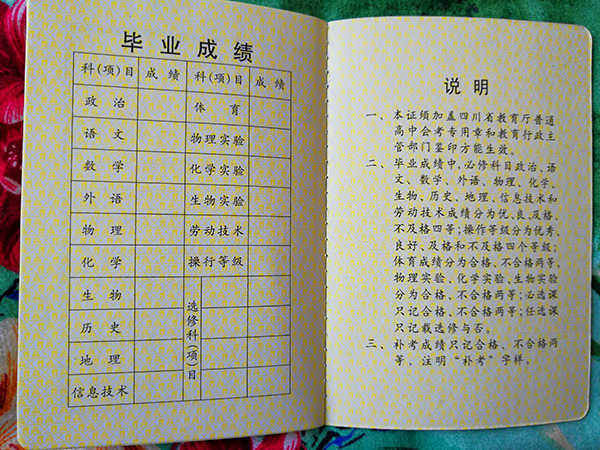 毕业成绩
科(项)目 成绩 科(项)目 成绩
政治 体育
语文 物理实验
数学 化学实验
外语 生物实验
物理 劳动技术
化学 操行等级
生物 选修科(项)目
历史
地理
信息技术
说明
一、本证须加盖四川省教育厅普通
高中会考专用章和教育行政主
管部门鉴印方能生效。
二、毕业成绩中,必修科目政治、语
文、数学、外语、物理、化学、
生物、历史、地理、信息技术和
劳动技术成绩分为优、良、及格、
不及格四等;操作等级分为优秀、
良好、及格和不及格四个等级;
体育成绩分为合格、不合格两等;
物理实验、化学实验、生物实验
分为合格、不合格两等;必选课
只记合格、不合格两等;任选课
只记载选修与否。
三、补考成绩只记合格、不合格两
等,注明“补考”字样。